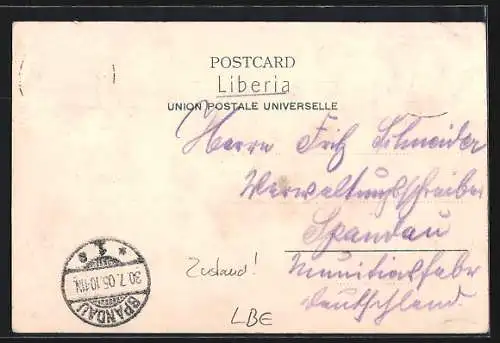 POSTCARD
Liberia
UNION POSTALE UNIVERSELLE
Herrn Fritz Schneider
Verwaltungsschreiber
Spandau
Munitionsfabr
Deutschland
Zustand!
LBE
* 1 s
30.7.05.10-11N.
SPANDAU